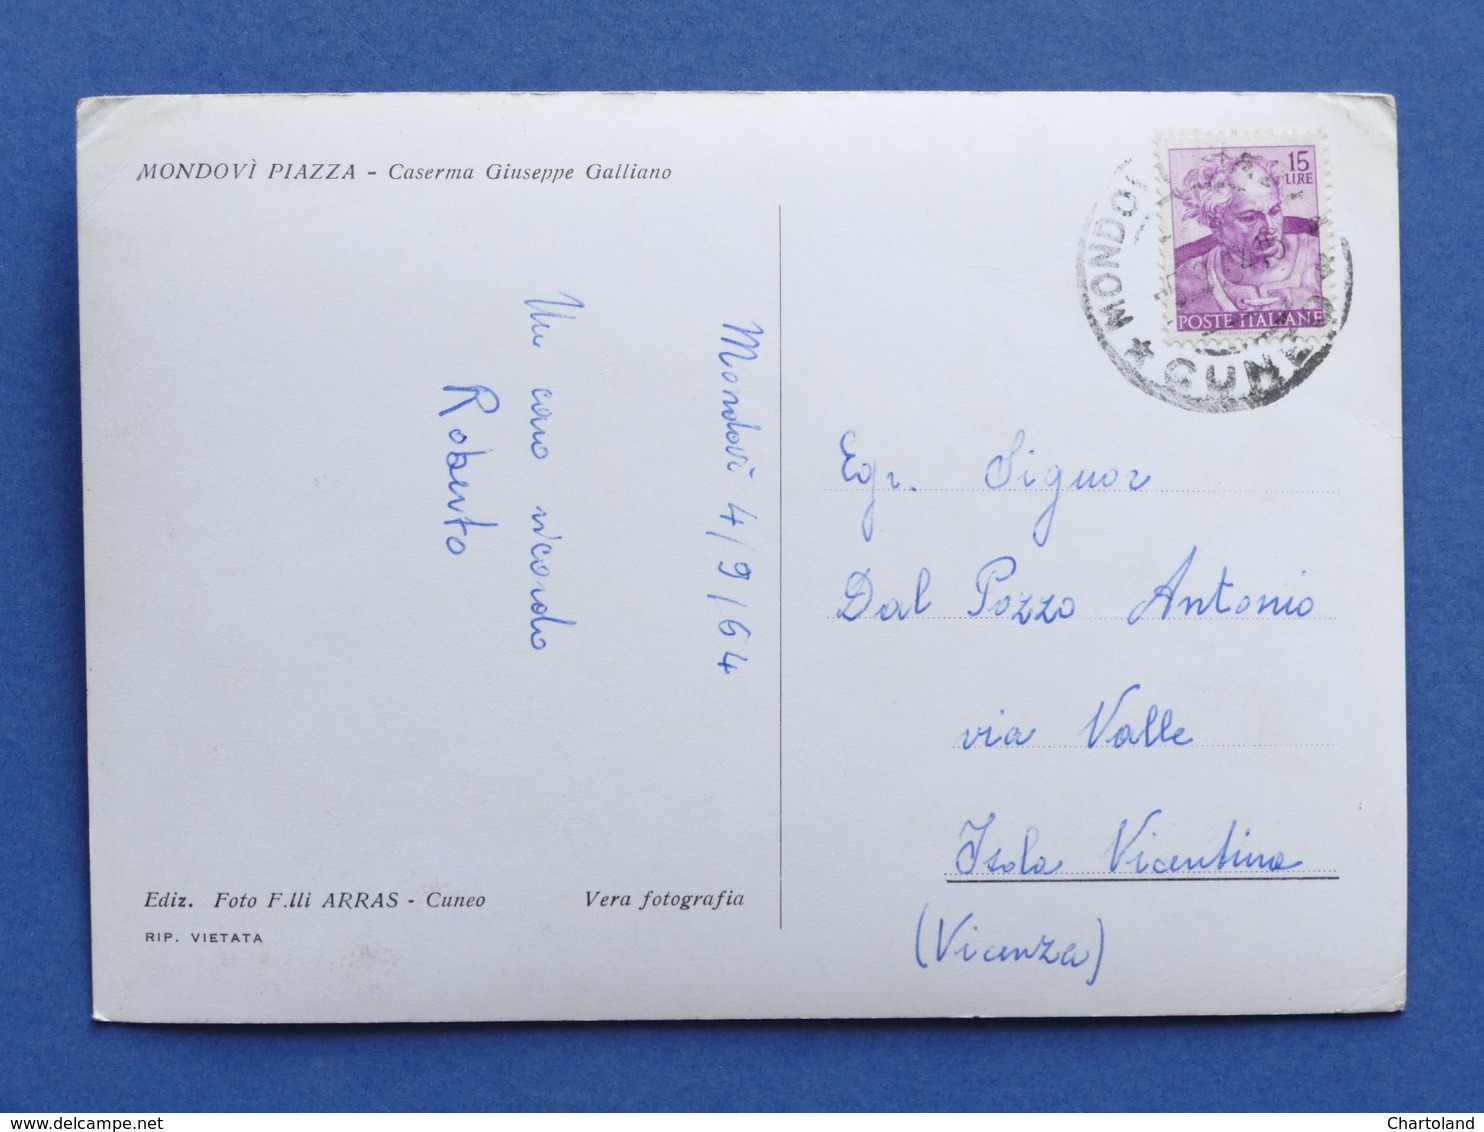 MONDOVÌ PIAZZA - Caserma Giuseppe Galliano
Mondovì 4/9/64
Un caro ricordo
Roberto
Ediz. Foto F.lli ARRAS - Cuneo
Vera fotografia
RIP. VIETATA
15
LIRE
POSTE ITALIANE
MONDOV
CUNEO
Egr. Signor
Dal Pozzo Antonio
via Valle
Isola Vicentina
(Vicenza)
Chartoland